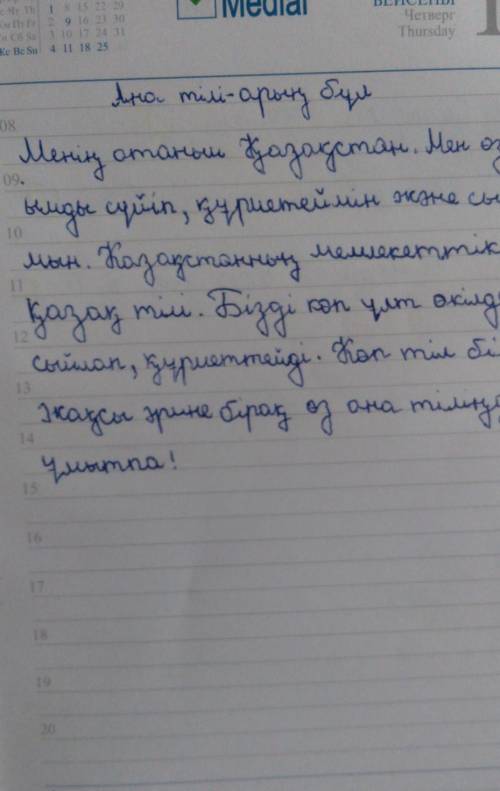 Th 1 8 15 22 29
2 9 16 23 30
3 10 17 24 31
Жс Вс Su 4 11 18 25
Medial
Четверг
Thursday
Ана тілі-арың бұл
08
Менің отаным Қазақстан. Мен өз
09.
ымды сүйіп, құрметеймін және сы
10
мын. Казақстанның мемлекеттік
11
қазақ тілі. Бізді көп ұлт өкілд
12
сыйлап, құрметтейді. Көп тіл бі
13
жақсы әрине бірақ өз ана тіліңд
14
ұмытпа!
15
16
17
18
19
20